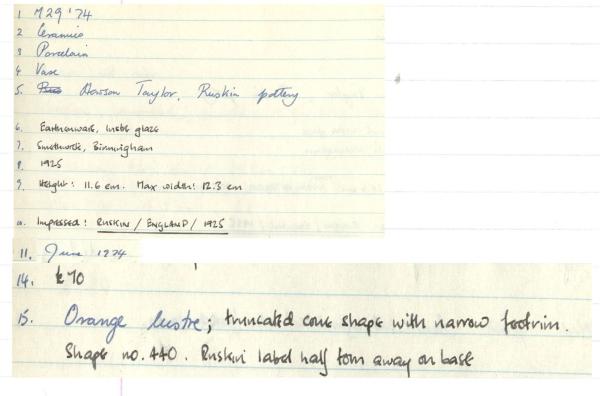 1 M29 '74
2 Ceramics
3 Porcelain
4 Vase
5. Howson Taylor, Ruskin pottery
6. Earthenware, lustre glaze
7. Smethwick, Birmingham
8. 1925
9. Height: 11.6 cm. Max width: 12.3 cm
10. Impressed: RUSKIN / ENGLAND / 1925
11. June 1974
14. £70
15. Orange lustre; truncated cone shape with narrow footrim.
Shape no. 440. Ruskin label half torn away on base